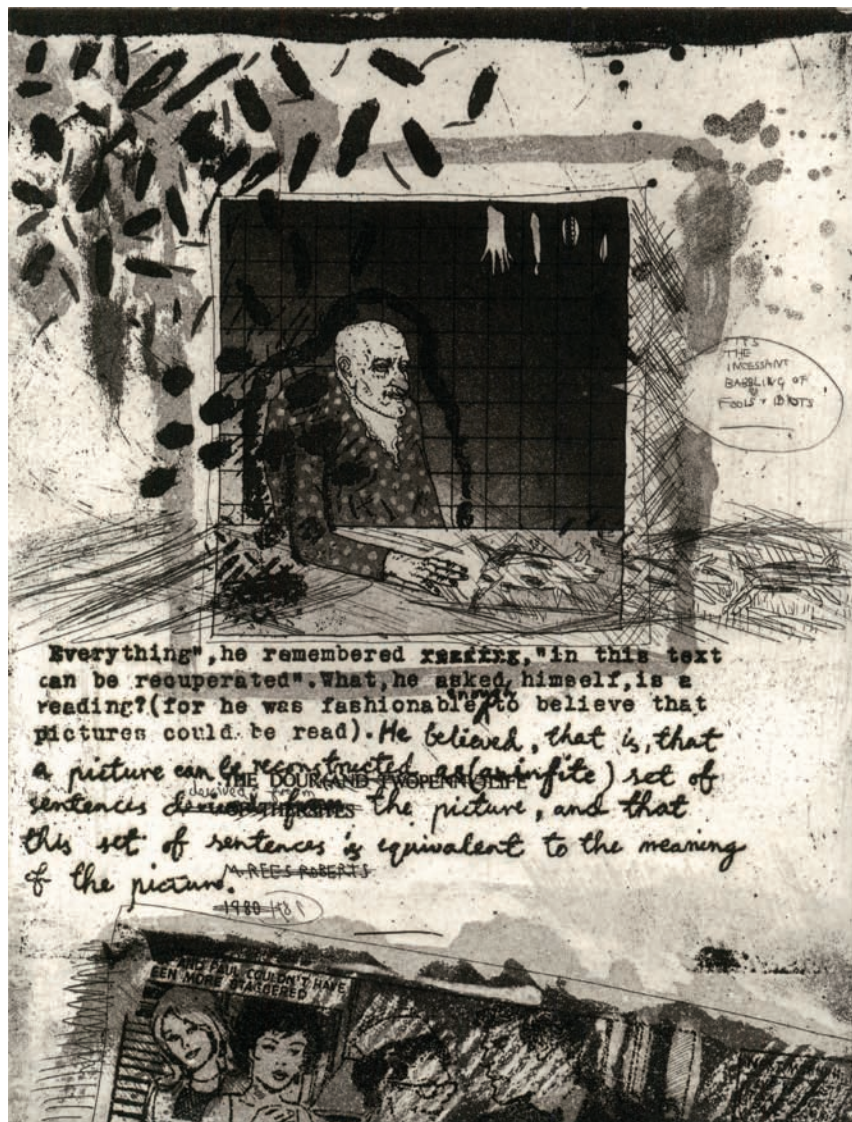 ITS
THE
INCESSANT
BABBLING OF
FOOLS + IDIOTS
Everything", he remembered reading, "in this text
can be recuperated". What, he asked himself, is a
reading? (for he was fashionable enough to believe that
pictures could be read). He believed, that is, that
a picture can be reconstructed as (an infinite) set of
THE DOUR (AND TWOPENNY) LIFE
sentences derived from the picture, and that
OF THERSITES
this set of sentences is equivalent to the meaning
of the picture.
M. REES ROBERTS
1980 1981
AND PAUL COULDN'T HAVE
EEN MORE STAGGERED